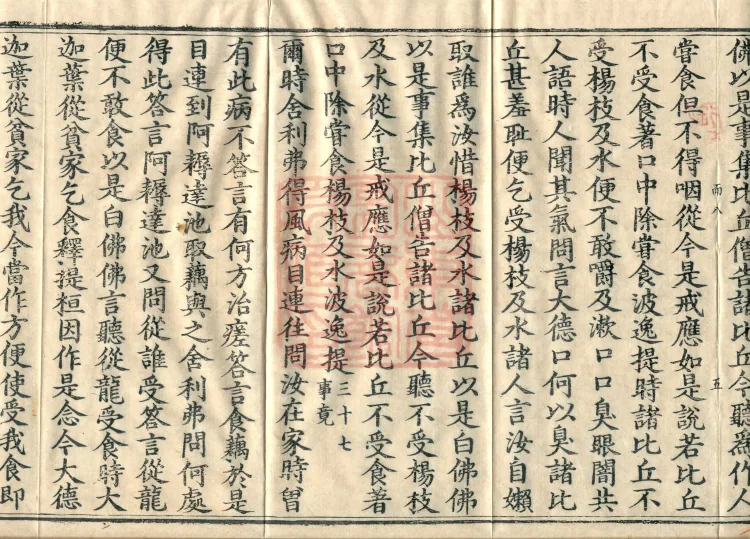 佛以是事集比丘僧告諸比丘今聽為作人
而八
五
甞食但不得咽從今是戒應如是說若比丘
不受食著口中除甞食波逸提時諸比丘不
受楊枝及水便不敢嚼及漱口口臭眼闇共
人語時人聞其氣問言大德口何以臭諸比
丘甚羞恥便乞受楊枝及水諸人言汝自嬾
取誰為汝惜楊枝及水諸比丘以是白佛佛
以是事集比丘僧告諸比丘今聽不受楊枝
及水從今是戒應如是說若比丘不受食著
口中除甞食楊枝及水波逸提三十七
事竟
爾時舍利弗得風病目連往問汝在家時曾
有此病不答言有何方治瘥答言食藕於是
目連到阿耨達池取藕與之舍利弗問何處
得此答言阿耨達池又問從誰受答言從龍
便不敢食以是白佛佛言聽從龍受食時大
迦葉從貧家乞食釋提桓因作是念今大德
迦葉從貧家乞我今當作方便使受我食即